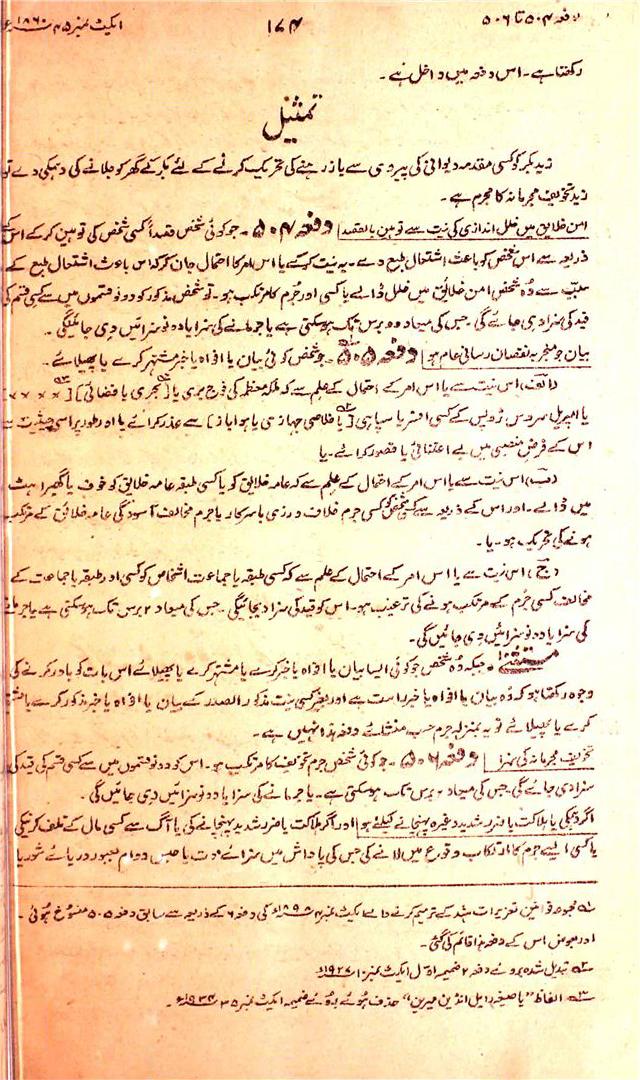 دفعہ ۵۰۴ تا ۵۰۶
۱۷۴
ایکٹ نمبر ۴۵ ۱۸۶۰ء
رکھتا ہے۔ اس دفعہ میں داخل ہے۔
تمثیل
زید بکر کو کسی مقدمہ دیوانی کی پیروی سے باز رہنے کی تحریک کرنے کے لئے بکر کے گھر کو جلانے کی دھمکی دے تو
زید تخویف مجرمانہ کا مجرم ہے۔
امن خلایق میں خلل اندازی کی نیت سے توہین بالقصد دفعہ ۵۰۴۔ جو کوئی شخص قصداً کسی شخص کی توہین کر کے اس کے
ذریعہ سے اس شخص کو باعث اشتعال طبع دے۔ یہ نیت کر کے یا اس امر کا احتمال جان کر کہ اس باعث اشتعال طبع کے
سبب سے وُہ شخص امن خلایق میں خلل ڈالے یا کسی اور جُرم کا مرتکب ہو۔ تو شخص مذکور کو دونو قسموں میں سے کسی قسم کی
قید کی سزا دی جائے گی۔ جس کی میعاد دو برس تک ہو سکتی ہے یا جرمانے کی سزا یا دونو سزائیں دی جائینگی۔
بیان جو منجر بہ نقصان رسانی عام ہو دفعہ ۵۰۵۔ جو شخص کوئی بیان یا افواہ یا خبر مشتہر کرے یا پھیلائے۔
(الف) اس نیت سے یا اس امر کے احتمال کے علم سے کہ ملکہ معظمہ کی فوج بری یا [بحری یا فضائی] [× × × ×]
یا امپریل سروس ٹروپس کے کسی افسر یا سپاہی [یا خلاصی جہازی یا ہوا باز] سے غدر کرائے یا اور طور پر اسی حیثیت سے
اس کے فرض منصبی میں بے اعتنائی یا قصور کرائے۔ یا
(ب) اس نیت سے یا اس امر کے احتمال کے علم سے کہ عامہ خلایق کو یا کسی طبقہ عامہ خلایق کو خوف یا گھبراہٹ
میں ڈالے۔ اور اس کے ذریعہ سے کسی شخص کو کسی جرم خلاف ورزی با سرکار یا جرم مخالف آسودگی عامہ خلائق کے مرتکب
ہونے کی تحریک ہو۔ یا۔
(ج) اس نیت سے یا اس امر کے احتمال کے علم سے کہ کسی طبقہ یا جماعت اشخاص کو کسی اور طبقہ یا جماعت کے
مخالف کسی جُرم کے مرتکب ہونے کی ترغیب ہو۔ اس کو قید کی سزا دیجائیگی۔ جس کی میعاد ۲ برس تک ہو سکتی ہے یا جرمانے
کی سزا یا دونو سزائیں دی جائیں گی۔
مستثنیٰ۔ جبکہ وُہ شخص جو کوئی ایسا بیان یا افواہ یا خبر کرے یا مشتہر کرے یا پھیلائے اس بات کو باور کرنے کی
وجوہ رکھتا ہو کہ وُہ بیان یا افواہ یا خبر راست ہے اور بغیر کسی نیت مذکور الصدر کے بیان یا افواہ یا خبر مذکور کرے یا مشتہر
کرے یا پھیلائے تو یہ بمنزلہ جرم حسب منشائے دفعہ ہذا نہیں ہے۔
تخویف مجرمانہ کی سزا دفعہ ۵۰۶۔ جو کوئی شخص جرم تخویف کا مرتکب ہو۔ اس کو دونو قسموں میں سے کسی قسم کی قید کی
سزا دی جائے گی۔ جس کی میعاد ۲ برس تک ہو سکتی ہے۔ یا جرمانے کی سزا یا دونو سزائیں دی جائیں گی۔
اگر دھمکی یا ہلاکت یا ضرر شدید وغیرہ پہنچانے کیلئے ہو اور اگر ہلاکت یا ضرر شدید پہنچانے کی یا آگ سے کسی مال کے تلف کرنیکی
یا کسی ایسے جرم کا ارتکاب وقوع میں لانے کی جس کی پاداش میں سزائے موت یا حبس دوام بعبور دریائے شور یا
۱ مجموعہ قوانین تعزیرات ہند کے ترمیم کرنے والے ایکٹ نمبر ۴ ۱۸۹۸ء کی دفعہ ۶ کے ذریعہ سے سابق دفعہ ۵۰۵ منسوخ ہوئی۔
اور بعوض اس کے دفعہ ہذا قائم کی گئی۔
۲ تبدیل شدہ بروئے دفعہ ۲ ضمیمہ اوّل ایکٹ نمبر ۱۰ ۱۹۲۷ء
۳ الفاظ "یا صیغہ رایل انڈین میرین" حذف ہوئے بروئے ضمیمہ ایکٹ نمبر ۳۵ ۱۹۳۴ء۔